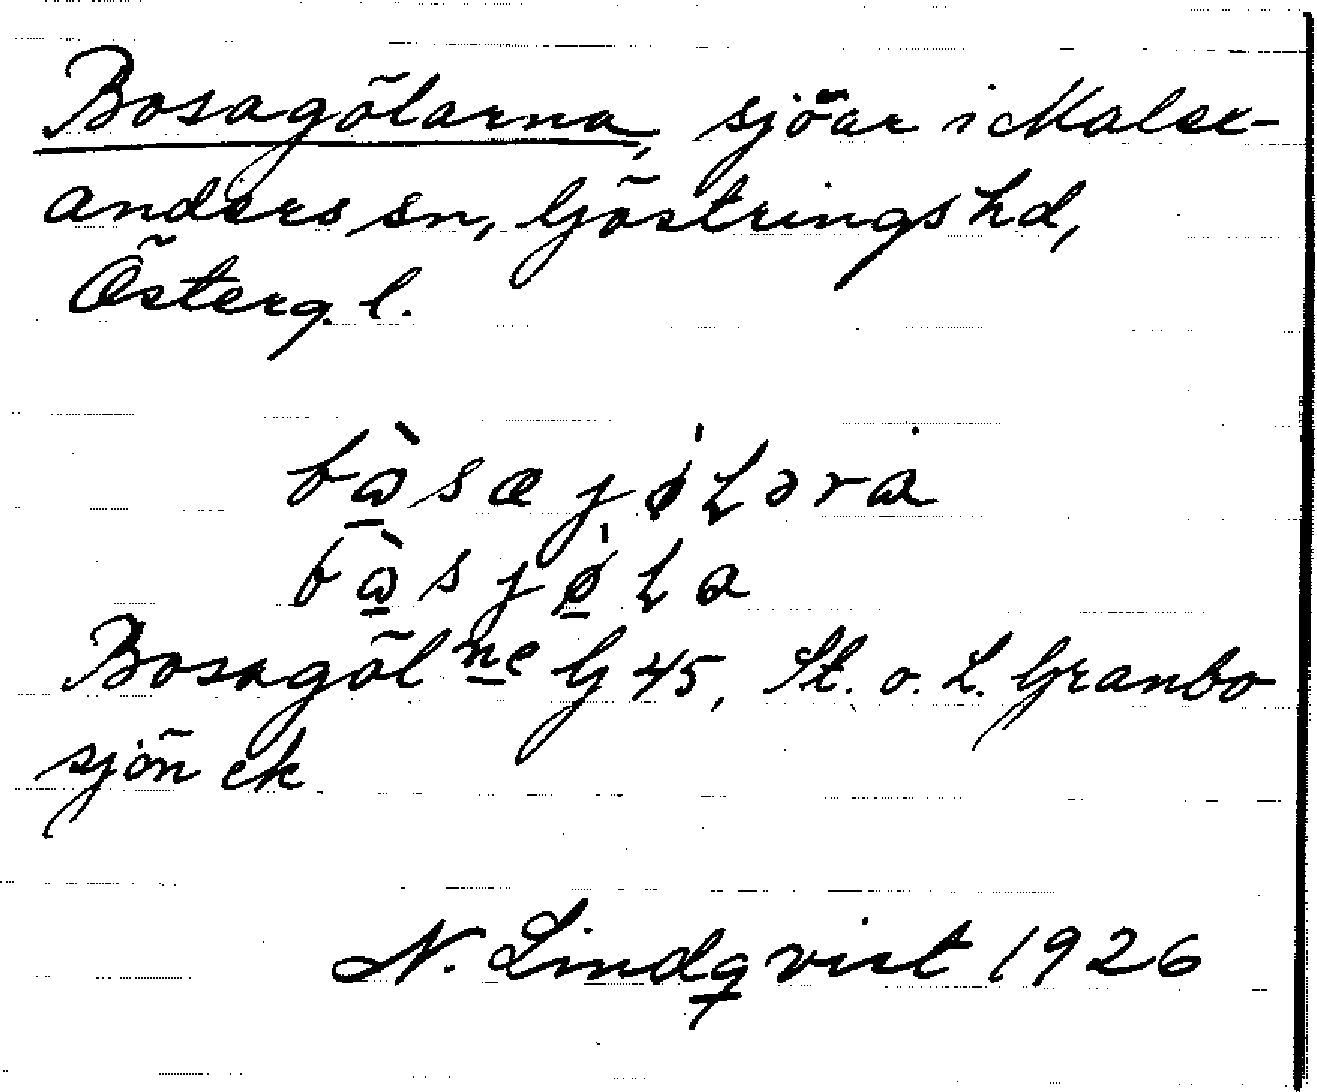 Bosagölarna, sjöar i Malex-
anders sn, Göstrings hd,
Österg. l.
bὰsajǿLəra
bὰsjǿLa
Bosagöl ne G 45, St. o. L. Granbo
sjön ek
N. Lindqvist 1926